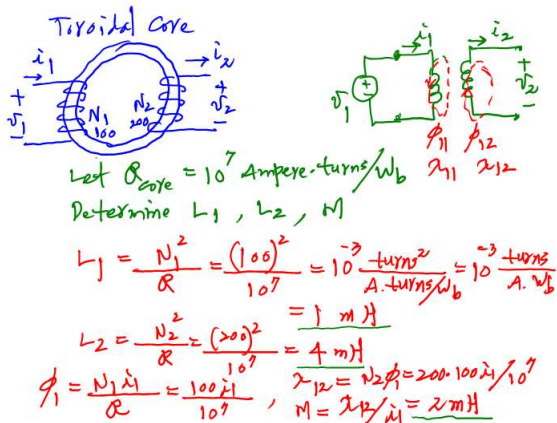 Toroidal Core
i1 i2
+ v1 − N1 100 N2 200 + v2 −
i1 i2
v1 + − + v2 −
φ11 φ12
λ11 λ12
Let ℛcore = 10^7 Ampere-turns/Wb
Determine L1, L2, M
L1 = N1^2/ℛ = (100)^2/10^7 = 10^-3 turns^2/A.turns/Wb = 10^-3 turns/A.Wb
= 1 mH
L2 = N2^2/ℛ = (200)^2/10^7 = 4 mH
φ1 = N1 i1/ℛ = 100 i1/10^7 , λ12 = N2 φ1 = 200.100 i1/10^7
M = λ12/i1 = 2 mH